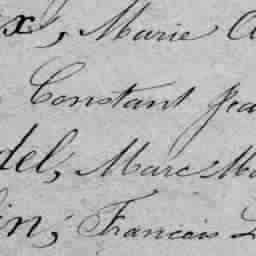 x, Marie
Constant
del, Marc
in; Francois